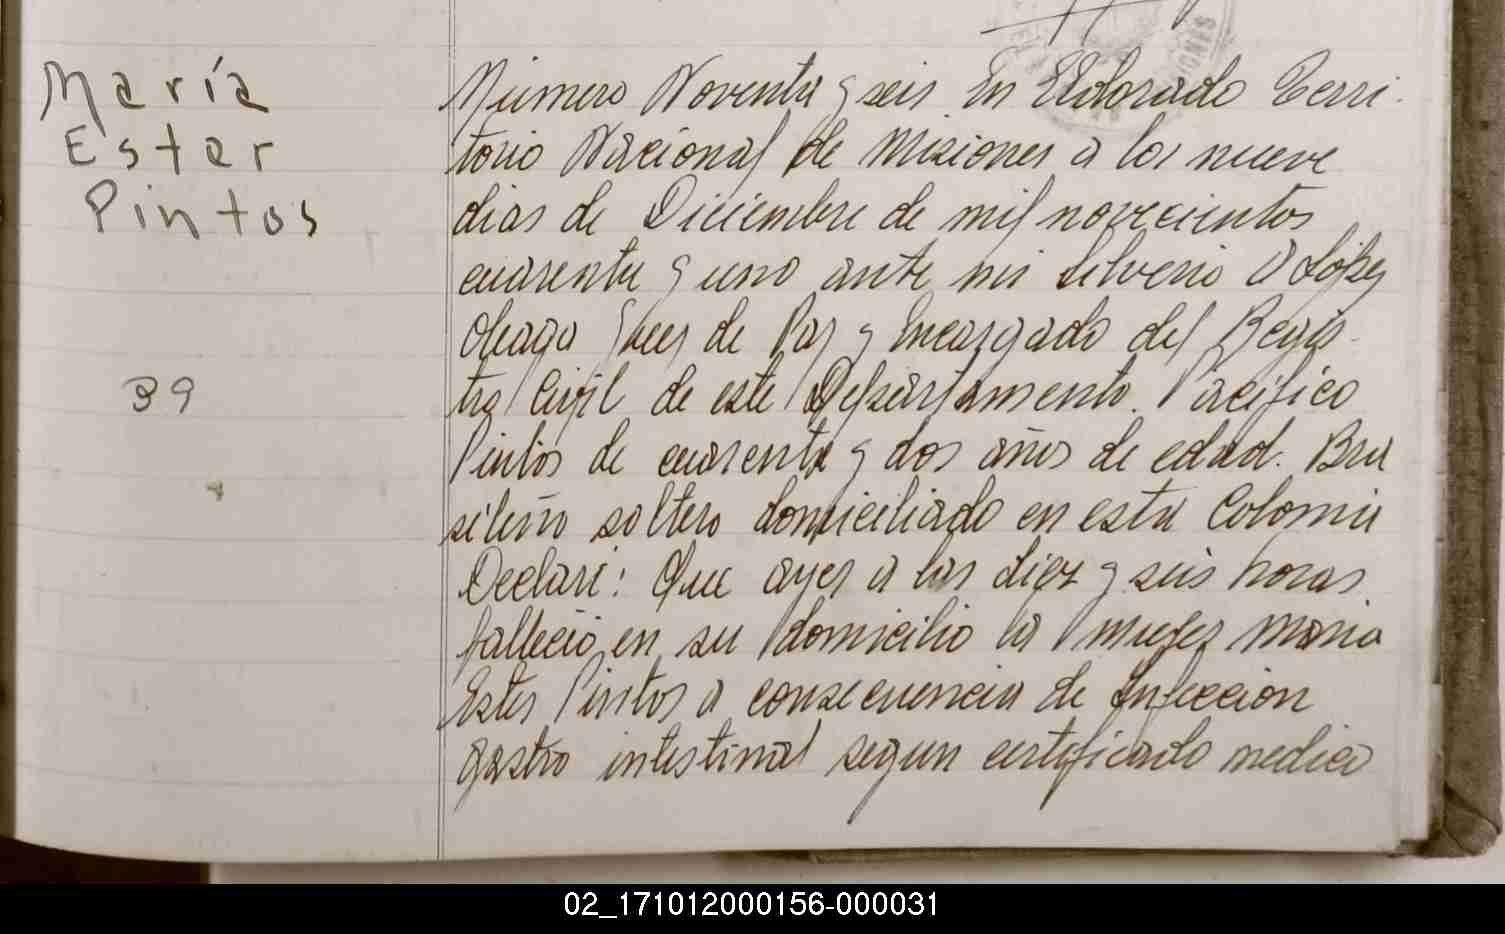 María
Ester
Pintos
39
Número Noventa y seis En Eldorado Terri-
torio Nacional de Misiones a los nueve
dias de Diciembre de mil novecientos
cuarenta y uno ante mi Silverio O López
Juez de Paz y Encargado del Regis-
tro Civil de este Departamento. Pacifico
Pintos de cuarenta y dos años de edad. Bra
sileño soltero domiciliado en esta Colonia
Declaró: Que ayer a las diez y seis horas
falleció en su domicilio la mujer Maria
Ester Pintos a consecuencia de Infeccion
gastro intestinal segun certificado medico
02_171012000156-000031